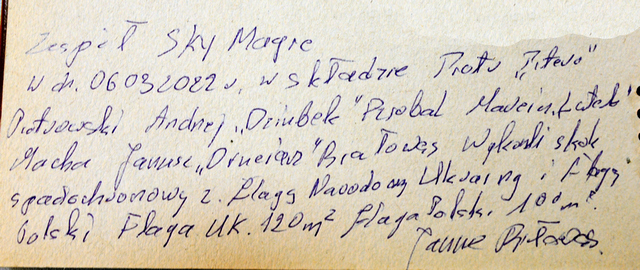 Zespół Sky Magic
w dn. 06032022 r. w składzie Piotr „Pitero"
Piotrowski Andrzej „Dziubek" Marcin „Łatek"
Macha Janusz Białowąs Wykonali skok
spadochronowy z Flagą Narodową Ukrainy i Flagą
Polski Flaga UK. 120m² flaga Polski 100m².
Janusz